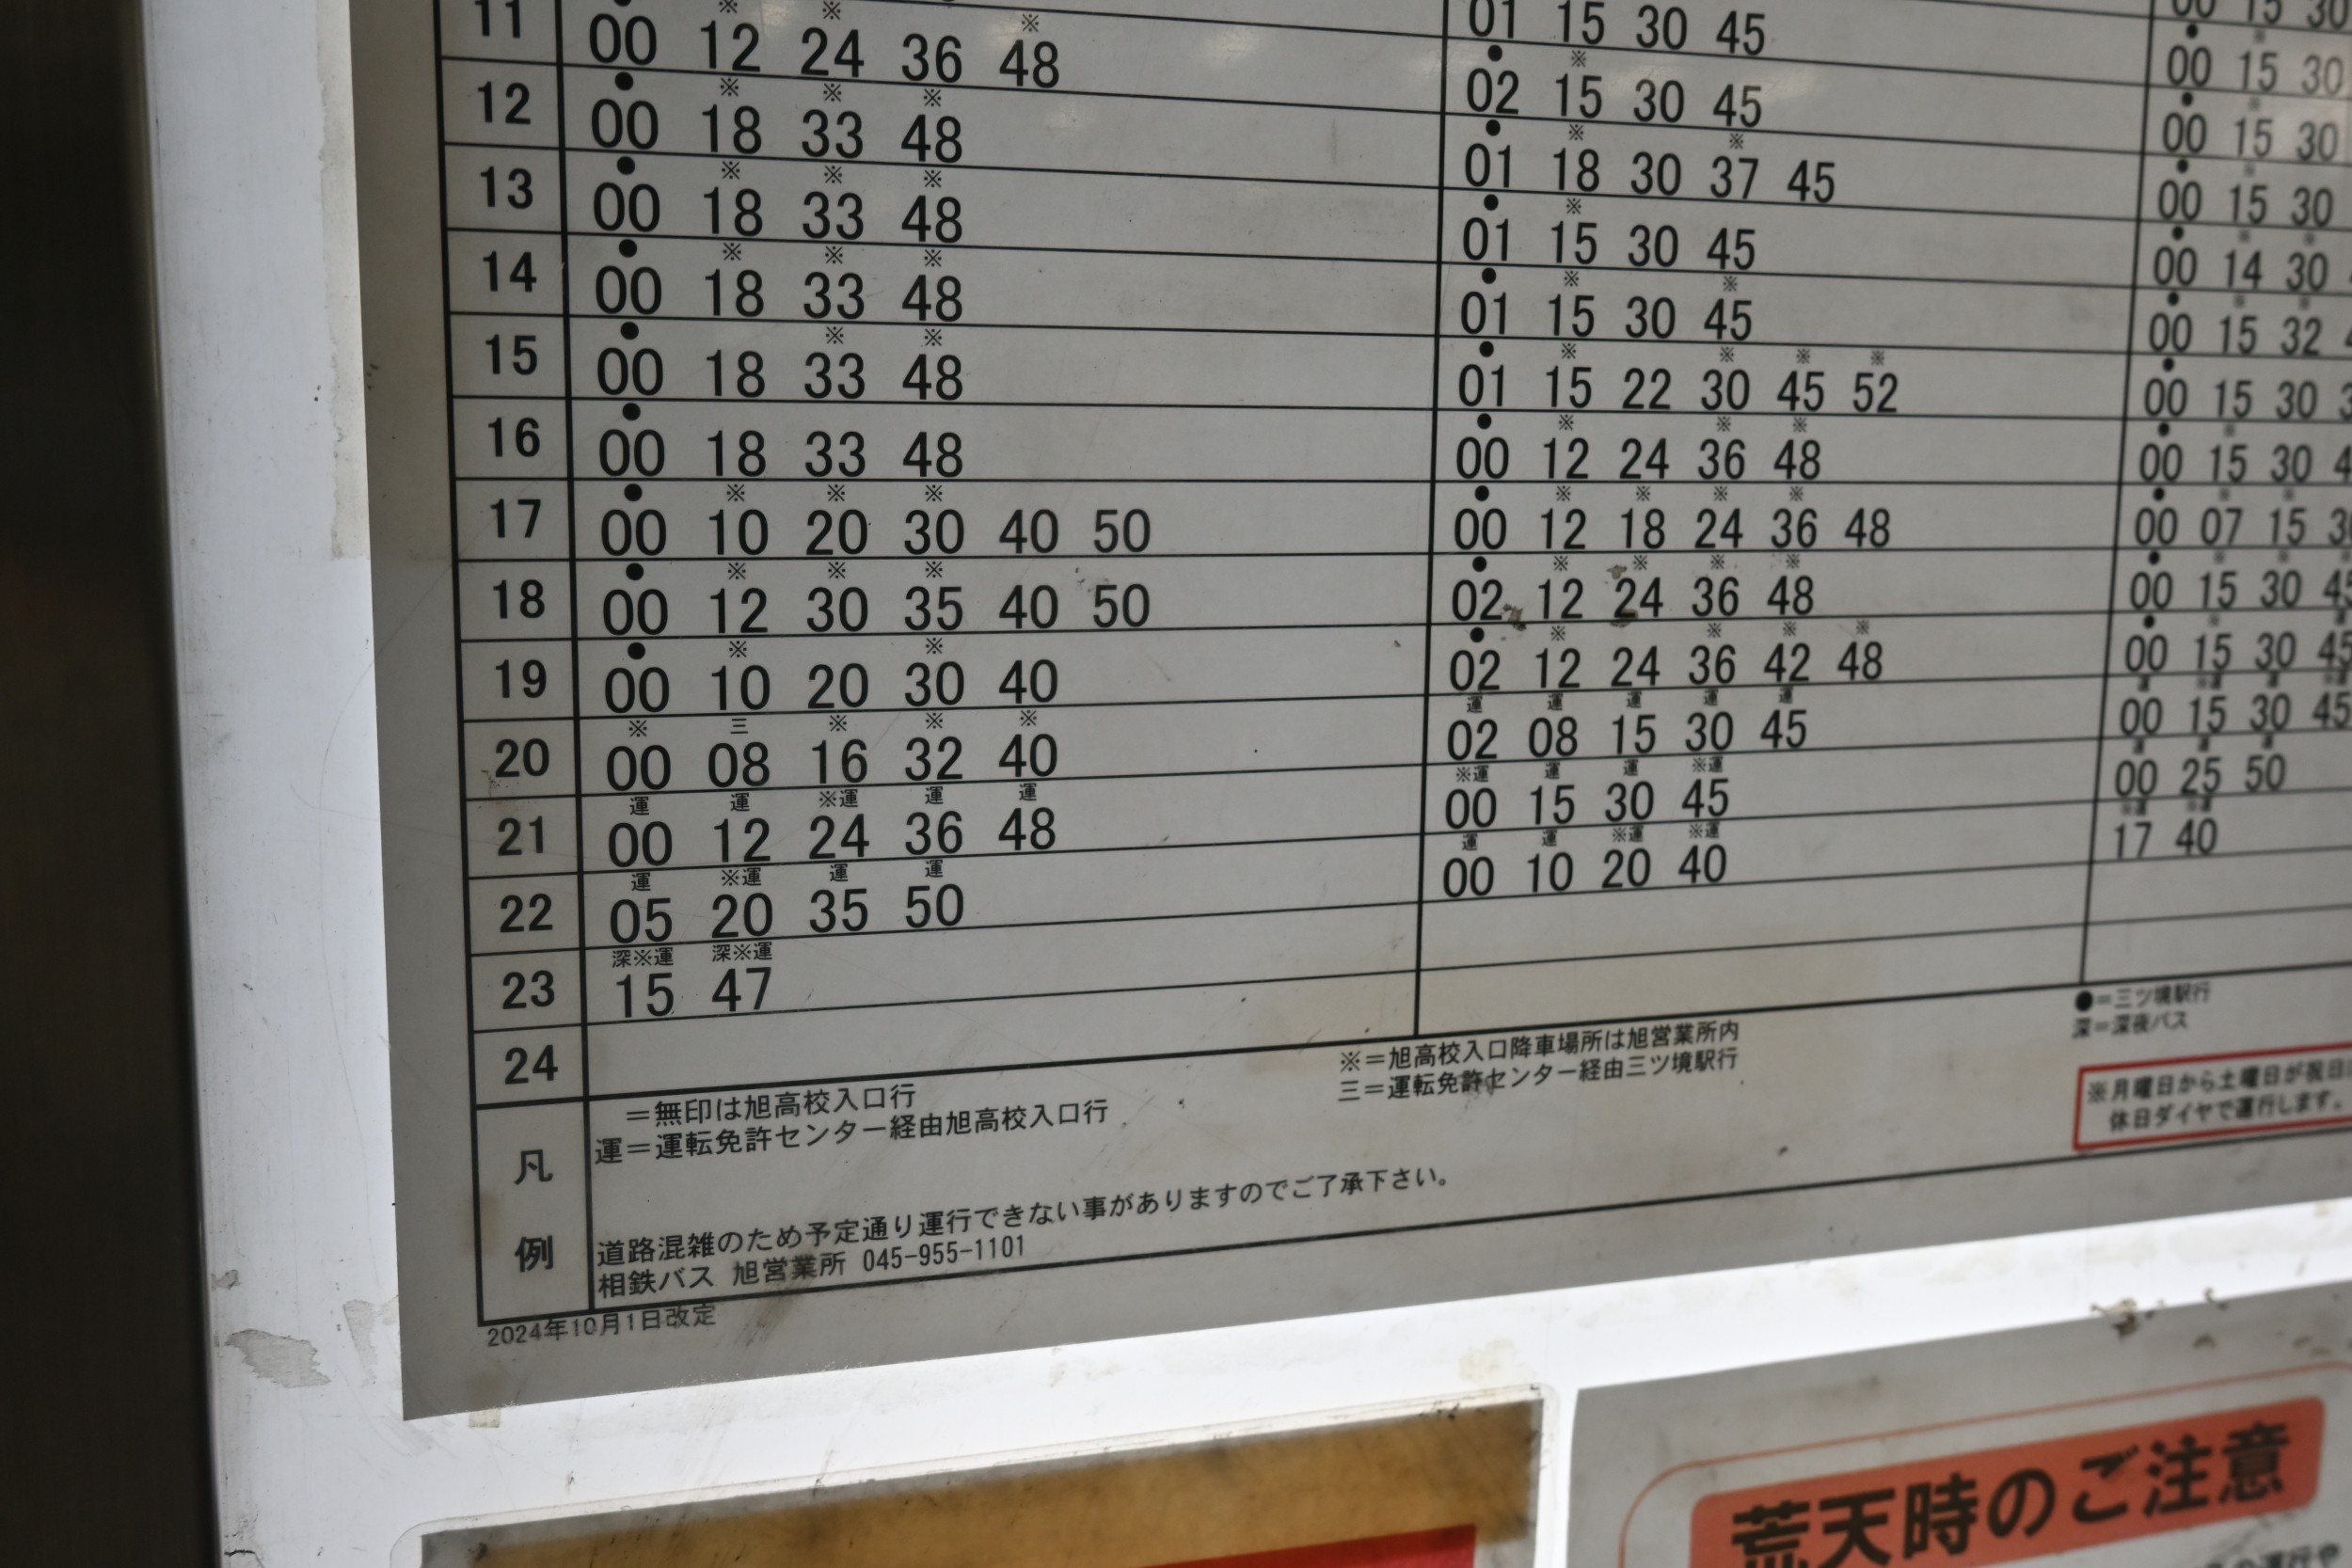 11 00 12 24 36 48 01 15 30 45 00 15 30
● ※ ※ ※ ● ※ ●
12 00 18 33 48 02 15 30 45 00 15 30
● ※ ※ ※ ● ※ ※ ●
13 00 18 33 48 01 18 30 37 45 00 15 30
● ※ ※ ※ ● ※ ●
14 00 18 33 48 01 15 30 45 00 15 30
● ※ ※ ※ ● ※ ※ ●
15 00 18 33 48 01 15 30 45 00 14 30
● ※ ※ ● ※ ※ ※ ※ ●
16 00 18 33 48 01 15 22 30 45 52 00 15 32
● ※ ※ ※ ● ※ ※ ※
17 00 10 20 30 40 50 00 12 24 36 48 00 15 30
● ※ ※ ※ ● ※ ※ ※ ※
18 00 12 30 35 40 50 00 12 18 24 36 48 00 15 30
● ※ ※ ● ※ ※ ※ ※
19 00 10 20 30 40 02 12 24 36 48 00 07 15
※ 三 ※ ※ ※ ● ※ ※ ※ ※
20 00 08 16 32 40 02 12 24 36 42 48 00 15 30 45
運 運 ※運 運 運 運 運 運 運 運
21 00 12 24 36 48 02 08 15 30 45 00 15 30 45
運 ※運 運 運 ※運 運 運 ※運
22 05 20 35 50 00 15 30 45 00 15 30 45
深※運 深※運 運 運 ※運 ※運
23 15 47 00 10 20 40 00 25 50
24 17 40
凡例
＝無印は旭高校入口行
※＝旭高校入口降車場所は旭営業所内
●＝三ツ境駅行
運＝運転免許センター経由旭高校入口行
三＝運転免許センター経由三ツ境駅行
深＝深夜バス
※月曜日から土曜日が祝日
休日ダイヤで運行します。
道路混雑のため予定通り運行できない事がありますのでご了承下さい。
相鉄バス 旭営業所 045-955-1101
2024年10月1日改定
荒天時のご注意